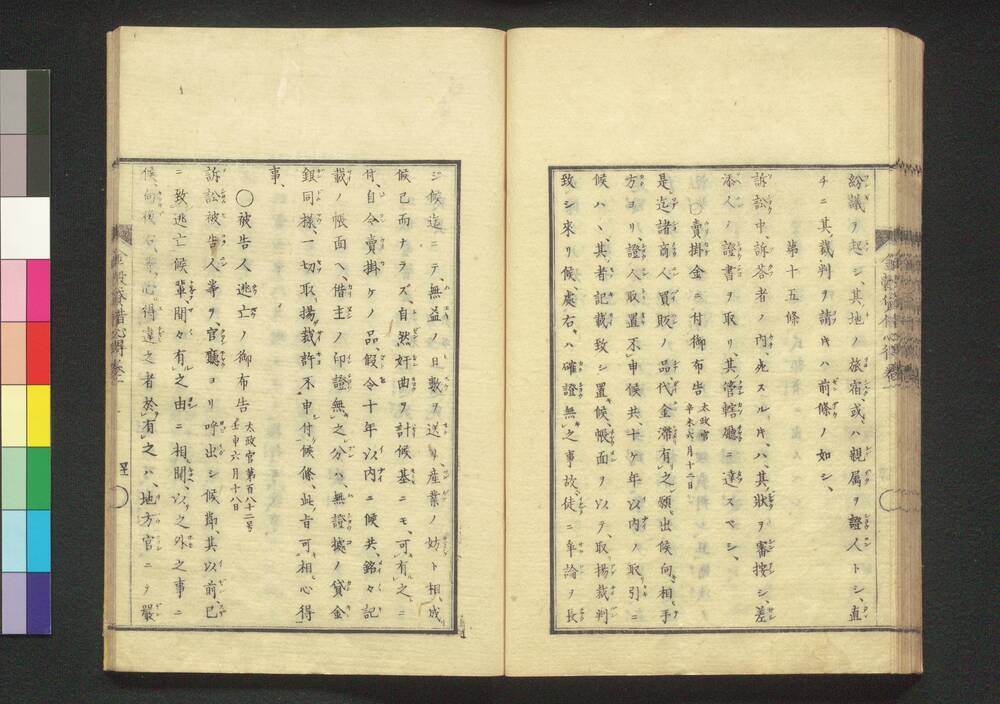 紛議ヲ起シ、其地ノ旅宿、或ハ親属ヲ證人トシ、直
チニ其裁判ヲ請ヒ片ハ前條ノ如シ、
第十五條
訴訟中、訴答者ノ内、死スル片ハ、其狀ヲ審按シ、差
添人ノ證書ヲ取リ、其管轄廳ニ達スベシ、
〇賣掛金ニ付御布告 太政官 辛未六月十二日
是迄諸商人買販ノ品代金滞有之願出候向、相手
方ヨリ、證人取置不申候共、十ケ年以内ノ取引ニ
候ハヽ、其者記載致シ置候帳面ヲ以テ、取揚裁判
致シ來リ候處、右ハ確證無之事故、徒ニ爭論ヲ長
ジ候迄ニテ、無益ノ日數ヲ送リ、産業ノ妨ト相成
候已而ナラズ、自然奸曲ヲ計候基ニモ、可有之ニ
付、自今賣掛ケノ品、假令十年以内ニ候共、銘々記
載ノ帳面ヘ、借主ノ印證無之分ハ、無證據ノ貸金
銀同様、一切取揚裁許不申付候條、此旨可相心得
事、
〇被告人逃亡ノ御布告 太政官第百八十二号 壬申六月十八日
訴訟被告人等ヲ、官廳ヨリ呼出シ候節、其以前已
ニ致逃亡候輩、間々有之由ニ相聞、以之外之事ニ
候、向後右等心得違之者於有之ハ、地方官ニテ嚴